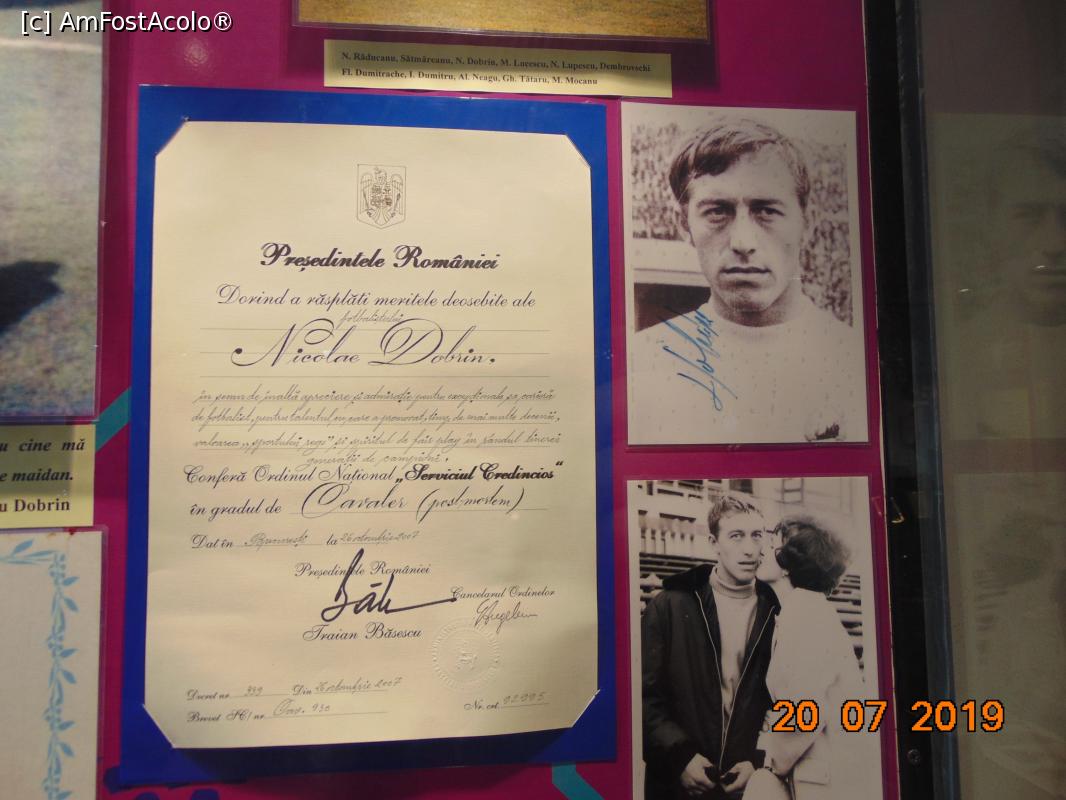 [c] AmFostAcolo®
N. Răducanu, Sătmăreanu, N. Dobrin, M. Lucescu, N. Lupescu, Dembrovschi
Fl. Dumitrache, I. Dumitru, Al. Neagu, Gh. Tătaru, M. Mocanu
Președintele României
Dorind a răsplăti meritele deosebite ale
fotbalistului
Nicolae Dobrin.
în semn de înaltă apreciere și admirație pentru excepționala sa carieră
de fotbalist, pentru talentul cu care a promovat, timp de mai multe decenii,
valoarea „sportului rege” și spiritul de fair play în rândul tinerei
generații de campioni.
Conferă Ordinul Național „Serviciul Credincios”
în gradul de Cavaler (post-mortem)
Dat în București la 26 octombrie 2007
Președintele României
Cancelarul Ordinelor
Traian Băsescu
Decret nr. 939 Din 26 octombrie 2007
Brevet SC/ nr. Cav. 930
Nr. crt. 92995
u cine mă
e maidan.
u Dobrin
20 07 2019